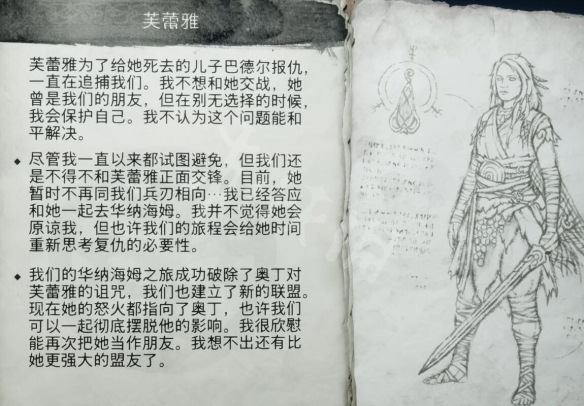 芙蕾雅
芙蕾雅为了给她死去的儿子巴德尔报仇，
一直在追捕我们。我不想和她交战，她
曾是我们的朋友，但在别无选择的时候，
我会保护自己。我不认为这个问题能和
平解决。
◆ 尽管我一直以来都试图避免，但我们还
是不得不和芙蕾雅正面交锋。目前，她
暂时不再同我们兵刃相向…我已经答应
和她一起去华纳海姆。我并不觉得她会
原谅我，但也许我们的旅程会给她时间
重新思考复仇的必要性。
◆ 我们的华纳海姆之旅成功破除了奥丁对
芙蕾雅的诅咒，我们也建立了新的联盟。
现在她的怒火都指向了奥丁，也许我们
可以一起彻底摆脱他的影响。我很欣慰
能再次把她当作朋友。我想不出还有比
她更强大的盟友了。